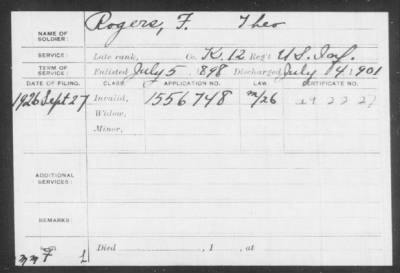 NAME OF SOLDIER: Rogers, F. Theo
SERVICE: Late rank, Co. K, 12 Reg't U.S. Inf.
TERM OF SERVICE: Enlisted July 5 1898 Discharged July 4 1901
DATE OF FILING. CLASS. APPLICATION NO. LAW. CERTIFICATE NO.
1926 Sept 27 Invalid, 1556748
Widow,
Minor,
ADDITIONAL SERVICES:
REMARKS:
Died , 1 , at